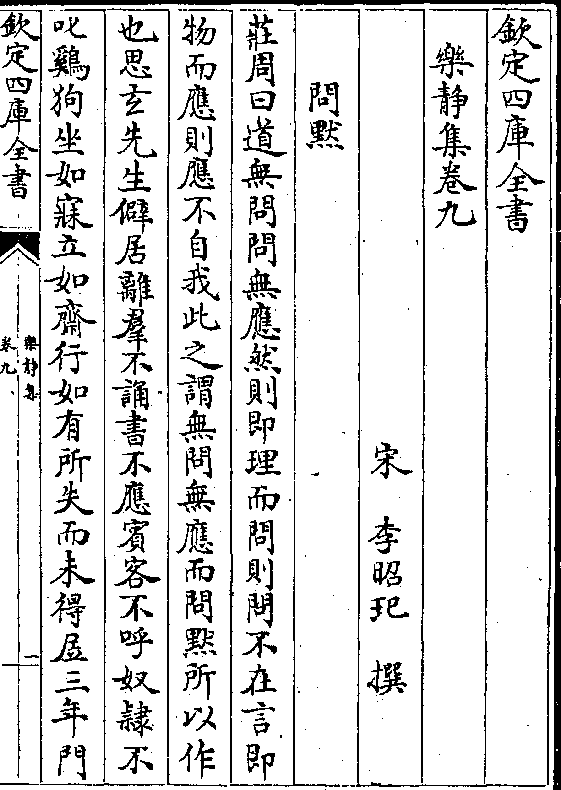 欽定四庫全書
樂静集卷九
宋 李昭玘 撰
問黙
莊周曰道無問問無應然則即理而問則問不在言即
物而應則應不自我此之謂無問無應而問黙所以作
也思玄先生僻居離羣不誦書不應賓客不呼奴隷不
叱鷄狗坐如寐立如齋行如有所失而未得居三年門
欽定四庫全書
樂静集
卷九
一